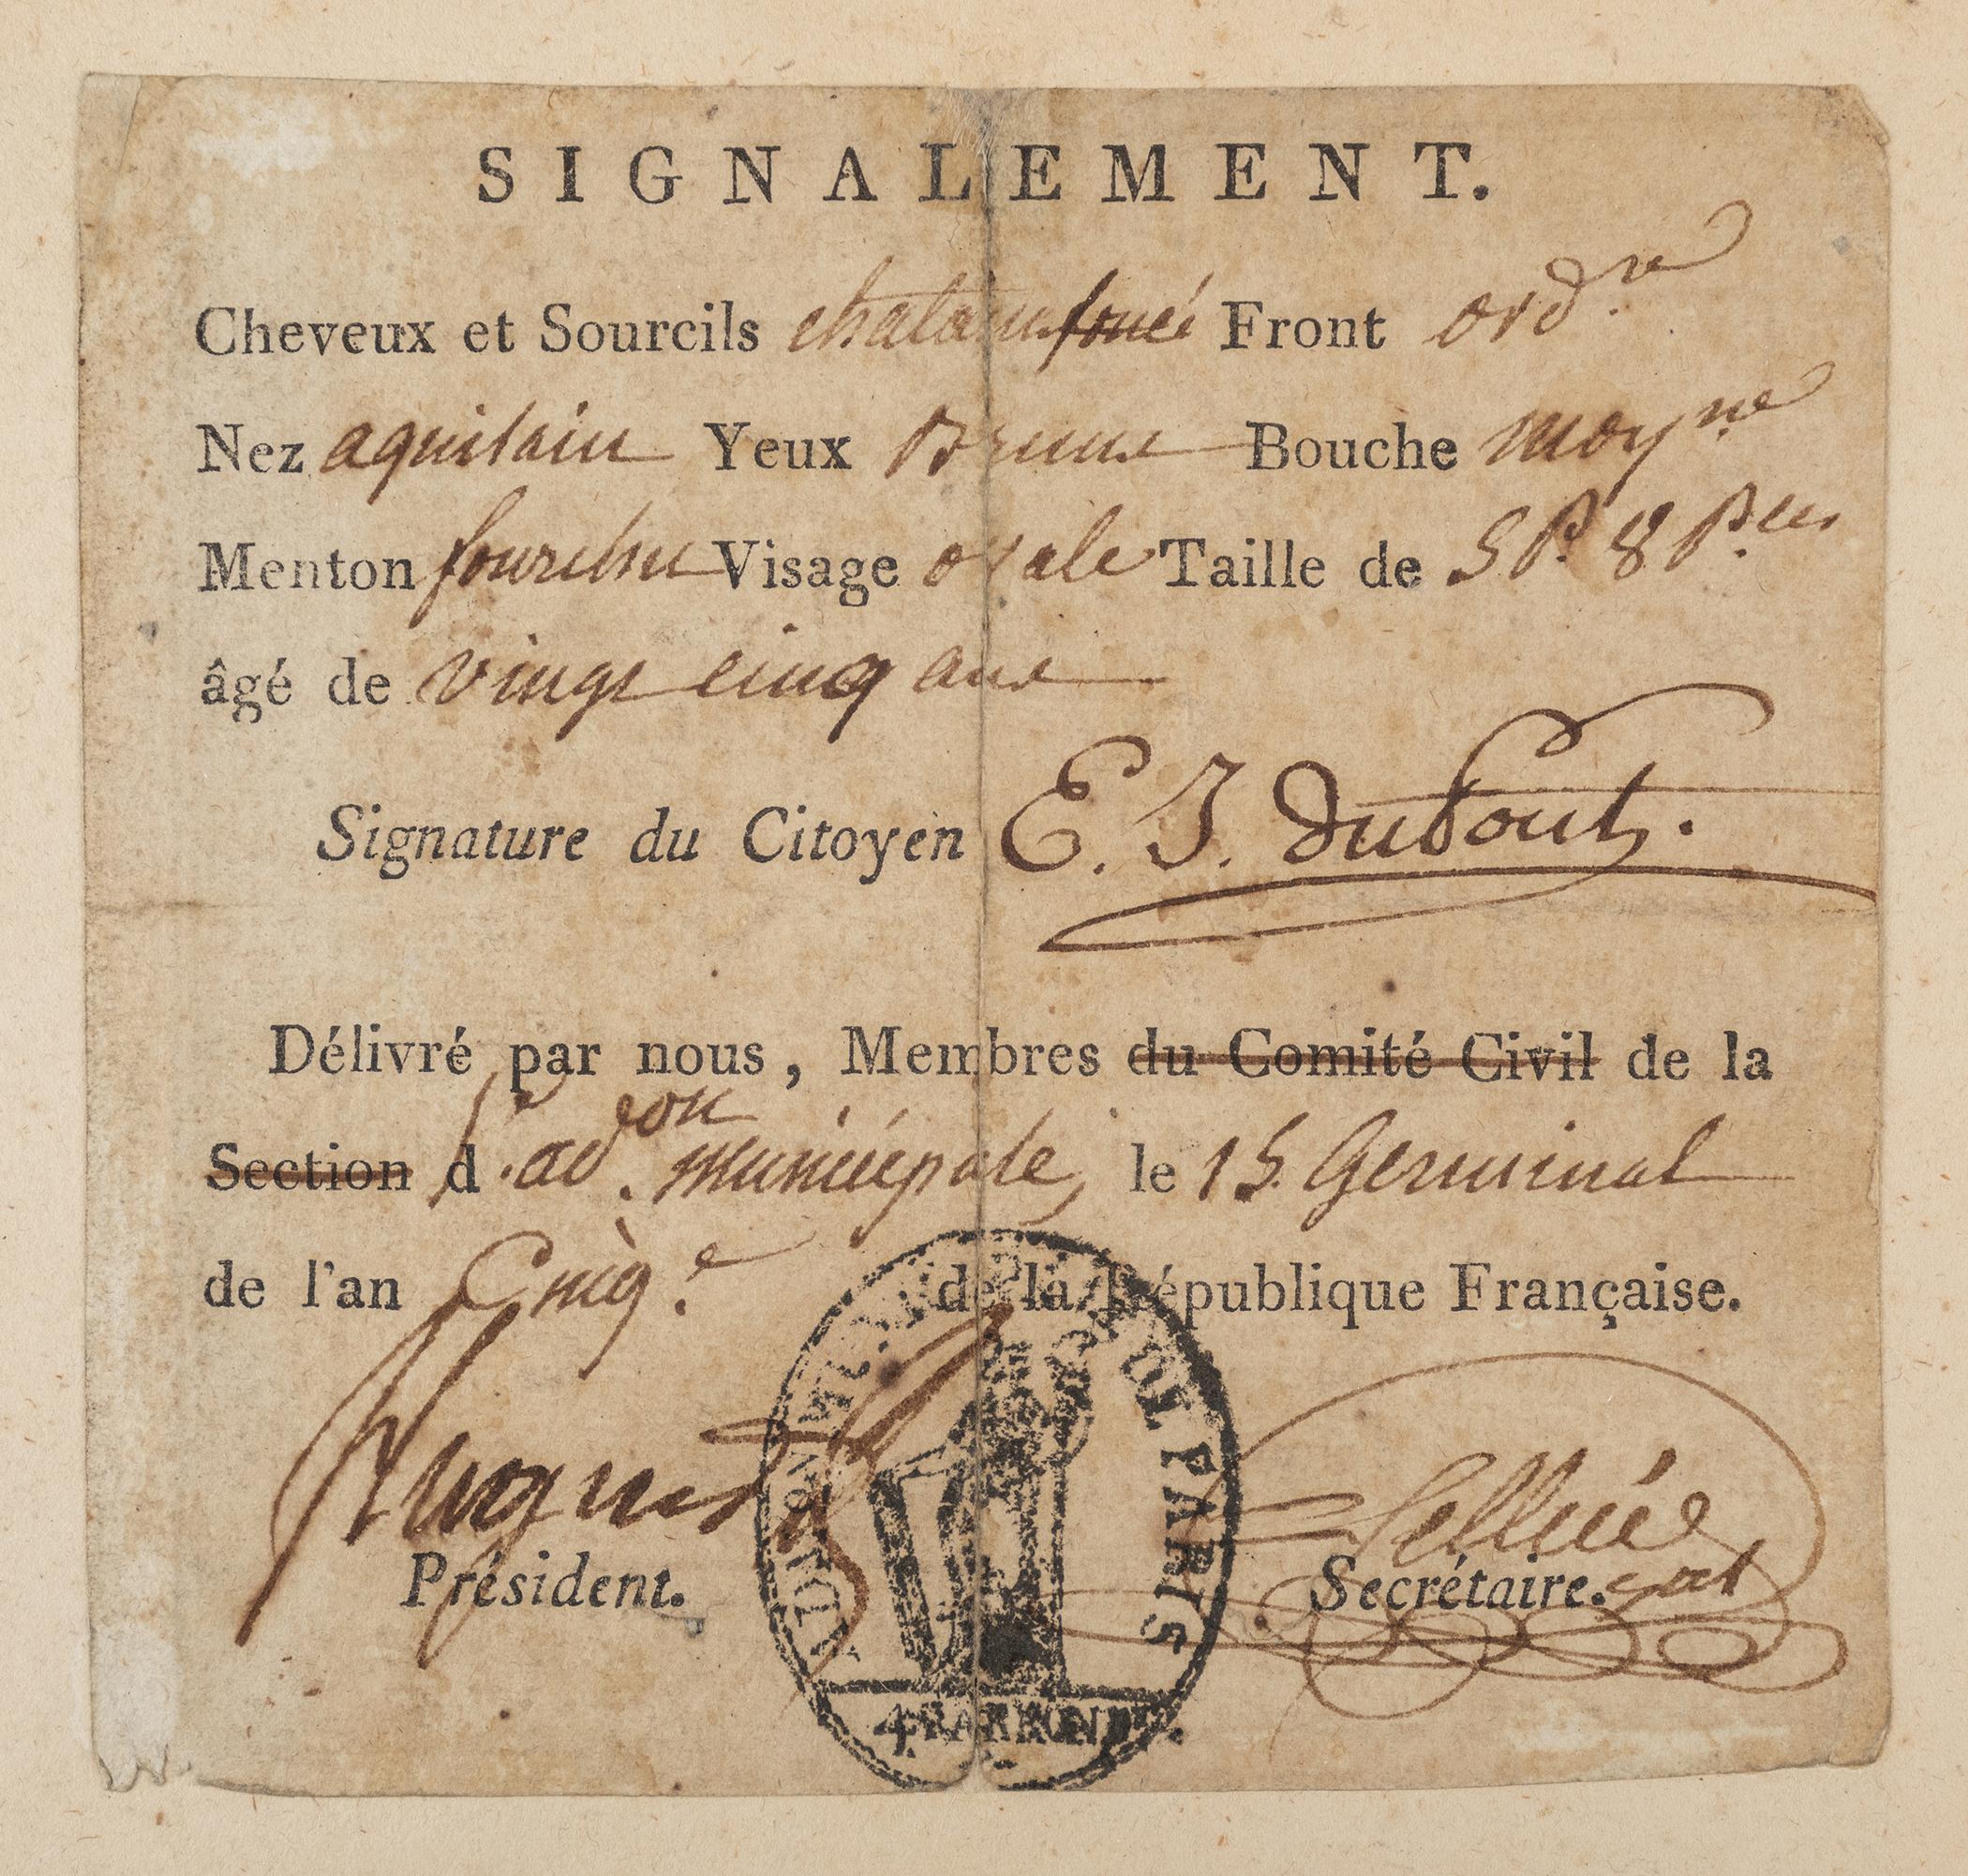 SIGNALEMENT.
Cheveux et Sourcils chatain foncé Front ord.re
Nez aquilain Yeux Bruns Bouche moy.ne
Menton fourchu Visage ovale Taille de 5 P. 8 P.ces
âgé de vingt cinq ans
Signature du Citoyen E. I. duPont.
Délivré par nous, Membres du Comité Civil de la
Section d l'ad.on municipale, le 15 Germinal
de l'an Cinq.e de la République Française.
Président. Secrétaire.
DE PARIS
4